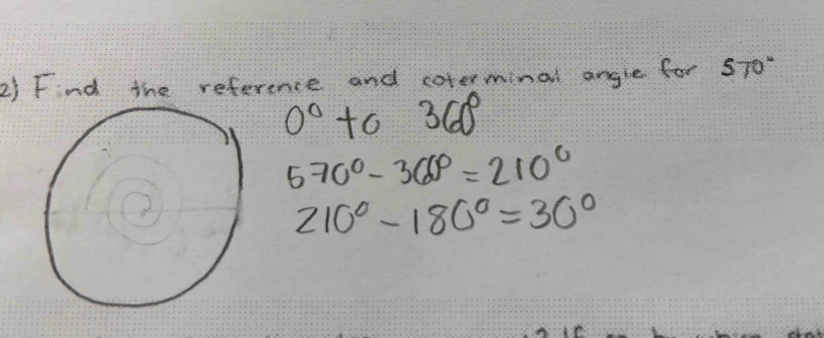 2) Find the reference and coterminal angle for 570°
0° to 360°
570° - 360° = 210°
210° - 180° = 30°